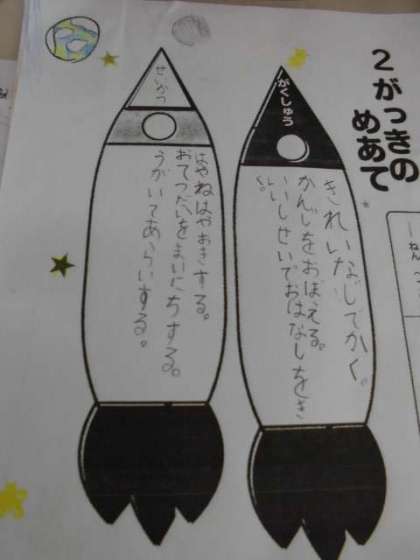 2がっきの
めあて
がくしゅう
きれいなじでかく。
かんじをおぼえる。
いいしせいでおはなしをき
く。
せいかつ
はやねはやおきする。
おてつだいをまいにちする。
うがいてあらいする。